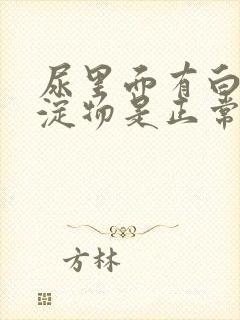 尿里面有白
淀物是正常
方林